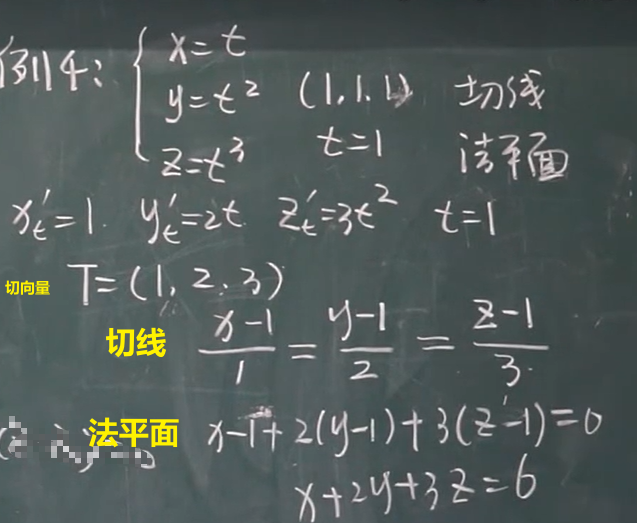 例4: { x=t
y=t² (1,1,1) 切线
z=t³ t=1 法平面
x't=1 y't=2t z't=3t² t=1
切向量 T=(1,2,3)
切线 (x-1)/1 = (y-1)/2 = (z-1)/3
法平面 x-1+2(y-1)+3(z-1)=0
x+2y+3z=6